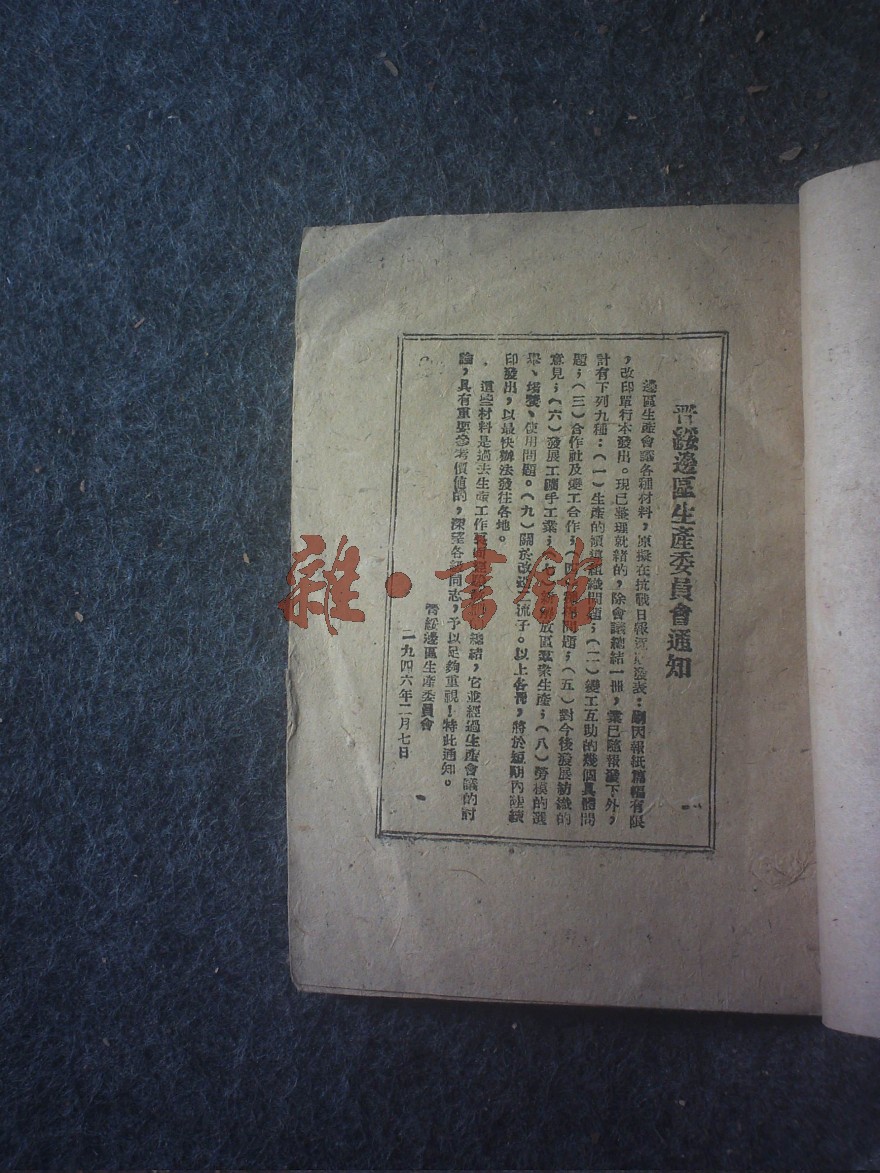 晉綏邊區生產委員會通知
邊區生產會議各種材料，原擬在抗戰日報發表；嗣因報紙篇幅有限
，改印單行本發出。現已整理就緒的，除會議總結一冊，業已隨報發下外，
計有下列九種：（一）生產的領導組織問題；（二）變工互助的幾個具體問
題；（三）合作社及變工合作；（四）問題；（五）對今後發展紡織的
意見；（六）發展工礦手工業；（七）放區羣衆生產；（八）勞模的選
舉、培養、使用問題。（九）關於改造二流子。以上各冊，將於短期內陸續
印發出，以最快辦法發往各地。
這些材料是過去生產工作總結，它並經過生產會議的討
論，具有重要參考價值的，深望各級同志，予以足夠重視！特此通知。
晉綏邊區生產委員會
一九四六年二月七日
雜·書館